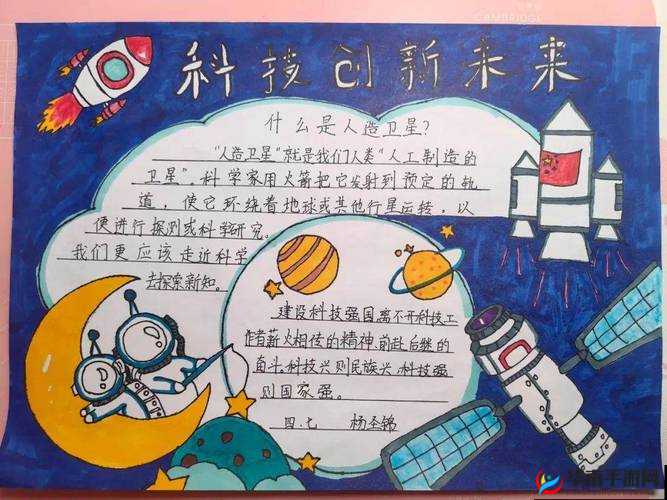 科技创新未来
什么是人造卫星?
"人造卫星"就是我们人类"人工制造的
卫星"。科学家用火箭把它发射到预定的轨
道，使它环绕着地球或其他行星运转，以
便进行探测或科学研究。
我们更应该走近科学
去探索新知。
建设科技强国离不开科技工
作者薪火相传的精神,前赴后继的
奋斗。科技兴则民族兴,科技强
则国家强。
四.七 杨圣锦
CAMBRIDGE